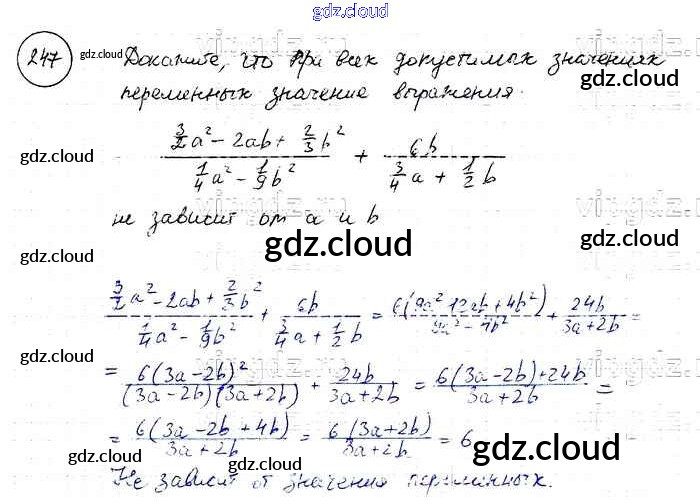 gdz.cloud
247 gdz.cloud Докажите, что при всех допустимых значениях
gdz.cloud
переменных значение выражения.
gdz.cloud
(3/2 a² - 2ab + 2/3 b²)/(1/4 a² - 1/9 b²) + 6b/(3/4 a + 1/2 b)
gdz.cloud
не зависит от a и b
gdz.cloud
gdz.cloud
(3/2 a² - 2ab + 2/3 b²)/(1/4 a² - 1/9 b²) + 6b/(3/4 a + 1/2 b) = 6(9a² - 12ab + 4b²)/(9a² - 4b²) + 24b/(3a + 2b) =
gdz.cloud
= 6(3a - 2b)²/((3a - 2b)(3a + 2b)) + 24b/(3a + 2b) = (6(3a - 2b) + 24b)/(3a + 2b) =
= 6(3a - 2b + 4b)/(3a + 2b) = 6(3a + 2b)/(3a + 2b) = 6
gdz.cloud
gdz.cloud
gdz.cloud
Не зависит от значения переменных.